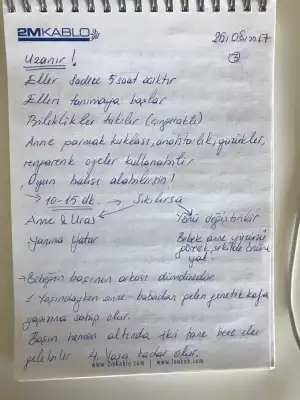 2M KABLO
26.08.2017
3
Uzanır!
Eller sadece 5 saat açıktır
Elleri tanımaya başlar
Bileklikler takılır (çıngıraklı)
Anne parmak kuklası, anahtarlık, yüzükler,
rengarenk ojeler kullanabilir
Oyun halısı alabilirsin!
→ 10-15 dk. → Sıkılırsa
Anne & Uras
Yönü değiştirilir
Yanına yatar
Bebek anne yüzünü
görecek şekilde önüne
yat.
→ Bebeğin başının arkası dümdüzdür.
Yaşındayken anne-babadan gelen genetik kafa
yapısına sahip olur.
Başın hemen altında iki tane beze ele
gelebilir 4. Yaşa kadar olur.
www.2mkablo.com www.lookeb.com